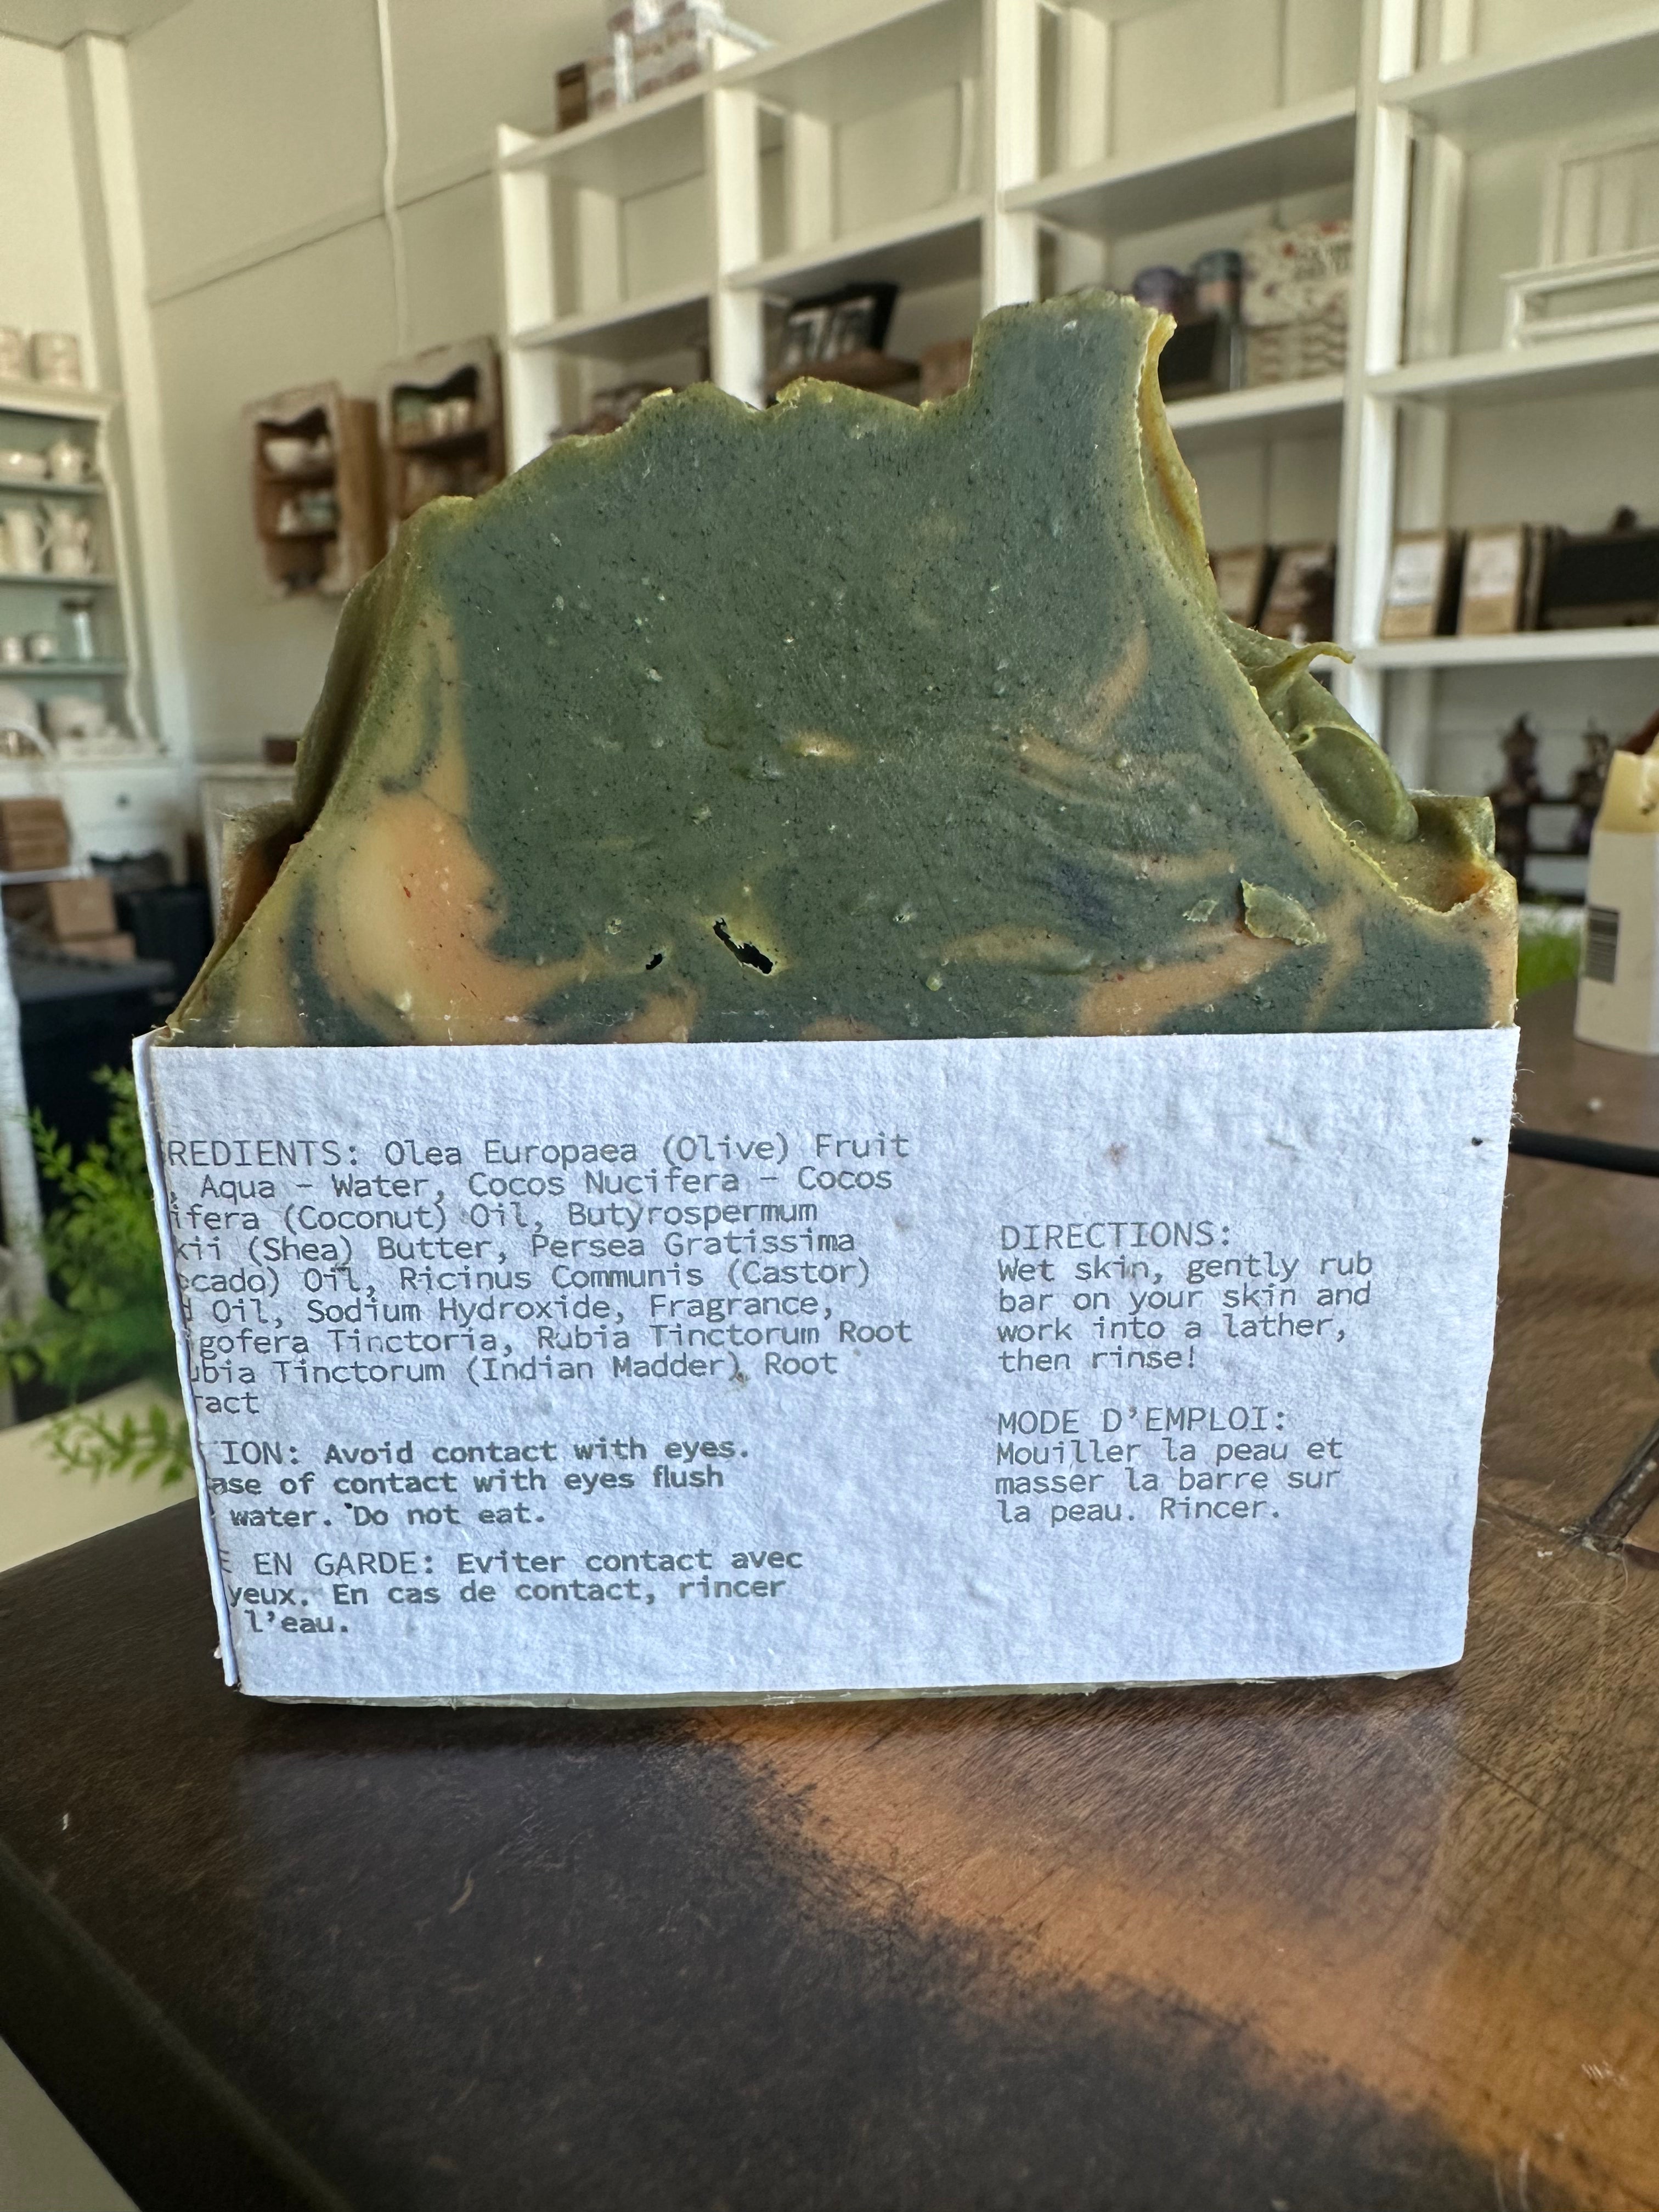 REDIENTS: Olea Europaea (Olive) Fruit
, Aqua - Water, Cocos Nucifera - Cocos
ifera (Coconut) Oil, Butyrospermum
kii (Shea) Butter, Persea Gratissima
ocado) Oil, Ricinus Communis (Castor)
d Oil, Sodium Hydroxide, Fragrance,
igofera Tinctoria, Rubia Tinctorum Root
ubia Tinctorum (Indian Madder) Root
ract
TION: Avoid contact with eyes.
ase of contact with eyes flush
water. Do not eat.
E EN GARDE: Eviter contact avec
yeux. En cas de contact, rincer
l'eau.
DIRECTIONS:
Wet skin, gently rub
bar on your skin and
work into a lather,
then rinse!
MODE D'EMPLOI:
Mouiller la peau et
masser la barre sur
la peau. Rincer.